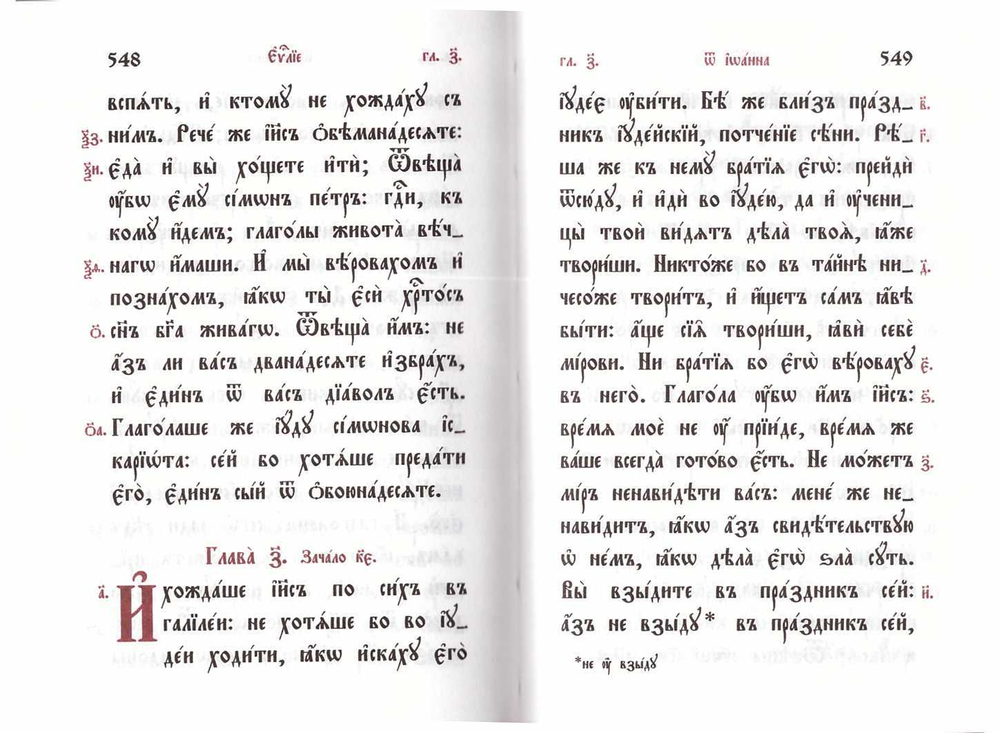 548 Є҆ѵⷢ҇лїе гл. з҃.
вспѧ́ть, и҆ ктомꙋ̀ не хожда́хꙋ съ
ѯ҃з. ни́мъ. Рече́ же і҆и҃съ ѻ҆бѣмана́десѧте:
ѯ҃и. є҆да̀ и҆ вы̀ хо́щете и҆тѝ; Ѿвѣща̀
ᲂу҆̀бѡ є҆мꙋ̀ сі́мѡнъ пе́тръ: гдⷭ҇и, къ
комꙋ̀ и҆́демъ; глаго́лы живота̀ вѣ́ч_
ѯ҃ѳ. нагѡ и҆́маши. И҆ мы̀ вѣ́ровахомъ и҆
позна́хомъ, ꙗ҆́кѡ ты̀ є҆сѝ хрⷭ҇то́съ
ѻ҃. сн҃ъ бг҃а жива́гѡ. Ѿвѣща̀ и҆̀мъ: не
а҆́зъ ли ва́съ двана́десѧте и҆збра́хъ,
и҆ є҆ди́нъ ѿ ва́съ дїа́волъ є҆́сть.
ѻ҃а. Глаго́лаше же і҆ꙋ́дꙋ сі́мѡнова і҆с_
карїѡ́та: се́й бо хотѧ́ше преда́ти
є҆го̀, є҆ди́нъ сы́й ѿ ѻ҆боюна́десѧте.
Глава̀ з҃. Зача́ло к҃е.
а҃. И҆хожда́ше і҆и҃съ по си́хъ въ
галїле́и: не хотѧ́ше бо во і҆ꙋ_
де́и ходи́ти, ꙗ҆́кѡ и҆ска́хꙋ є҆го̀
гл. з҃. ѿ і҆ѡа́нна 549
і҆ꙋде́є ᲂу҆би́ти. Бѣ́ же бли́зъ пра́зд_ в҃.
никъ і҆ꙋде́йскїй, потче́нїе сѣ́ни. Рѣ́_ г҃.
ша же къ немꙋ̀ бра́тїѧ є҆гѡ̀: прейдѝ
ѿсю́дꙋ, и҆ и҆дѝ во і҆ꙋде́ю, да и҆ ᲂу҆чени_
цы̀ твоѝ ви́дѧтъ дѣла̀ твоѧ̀, ꙗ҆̀же
твори́ши. Никто́же бо въ та́йнѣ ни_ д҃.
чесо́же твори́тъ, и҆ и҆́щетъ са́мъ ꙗ҆́вѣ
бы́ти: а҆́ще сїѧ̑ твори́ши, ꙗ҆вѝ себѐ
мі́рови. Ни бра́тїѧ бо є҆гѡ̀ вѣ́роваху є҃.
въ него̀. Глаго́ла ᲂу҆̀бѡ и҆̀мъ і҆и҃съ: ѕ҃.
вре́мѧ моѐ не ᲂу҆̀ прїи́де, вре́мѧ же
ва́ше всегда̀ гото́во є҆́сть. Не мо́жетъ з҃.
мі́ръ ненави́дѣти ва́съ: мене́ же не_
нави́дитъ, ꙗ҆́кѡ а҆́зъ свидѣ́тельствꙋю
ѡ҆ не́мъ, ꙗ҆́кѡ дѣла̀ є҆гѡ̀ ѕла̀ сꙋ́ть.
Вы̀ взы́дите въ пра́здникъ се́й: и҃.
а҆́зъ не взы́дꙋ* въ пра́здникъ се́й,
*не ᲂу҆̀ взы́дꙋ